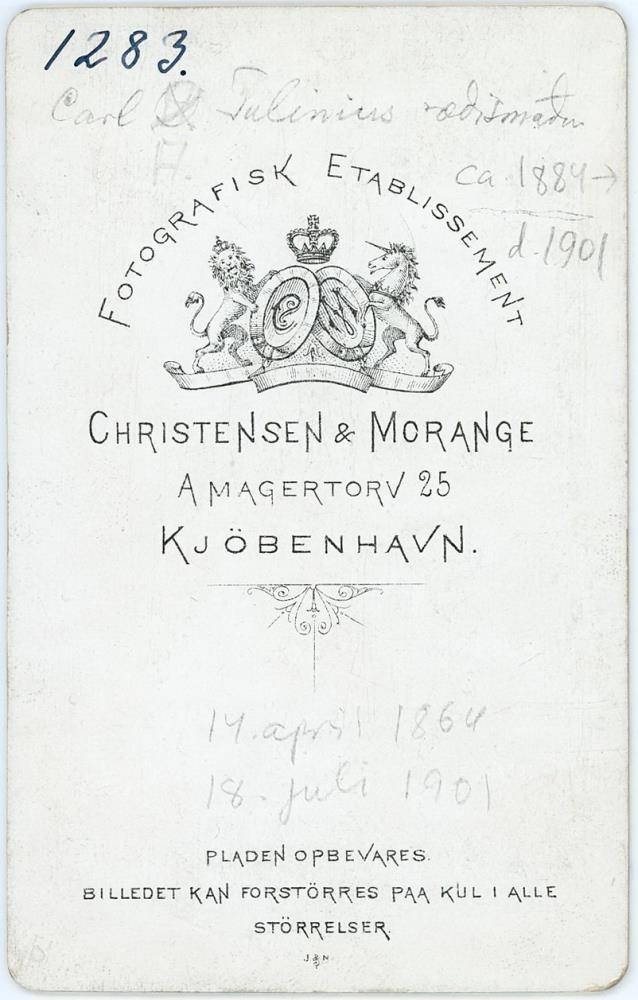 1283.
Carl D. Tulinius ræðismaður
H.
ca 1884 →
d. 1901
FOTOGRAFISK ETABLISSEMENT
C M
CHRISTENSEN & MORANGE
AMAGERTORV 25
KJÖBENHAVN.
14. apríl 1864
18. juli 1901
PLADEN OPBEVARES.
BILLEDET KAN FORSTÖRRES PAA KUL I ALLE
STÖRRELSER.
J. & N.